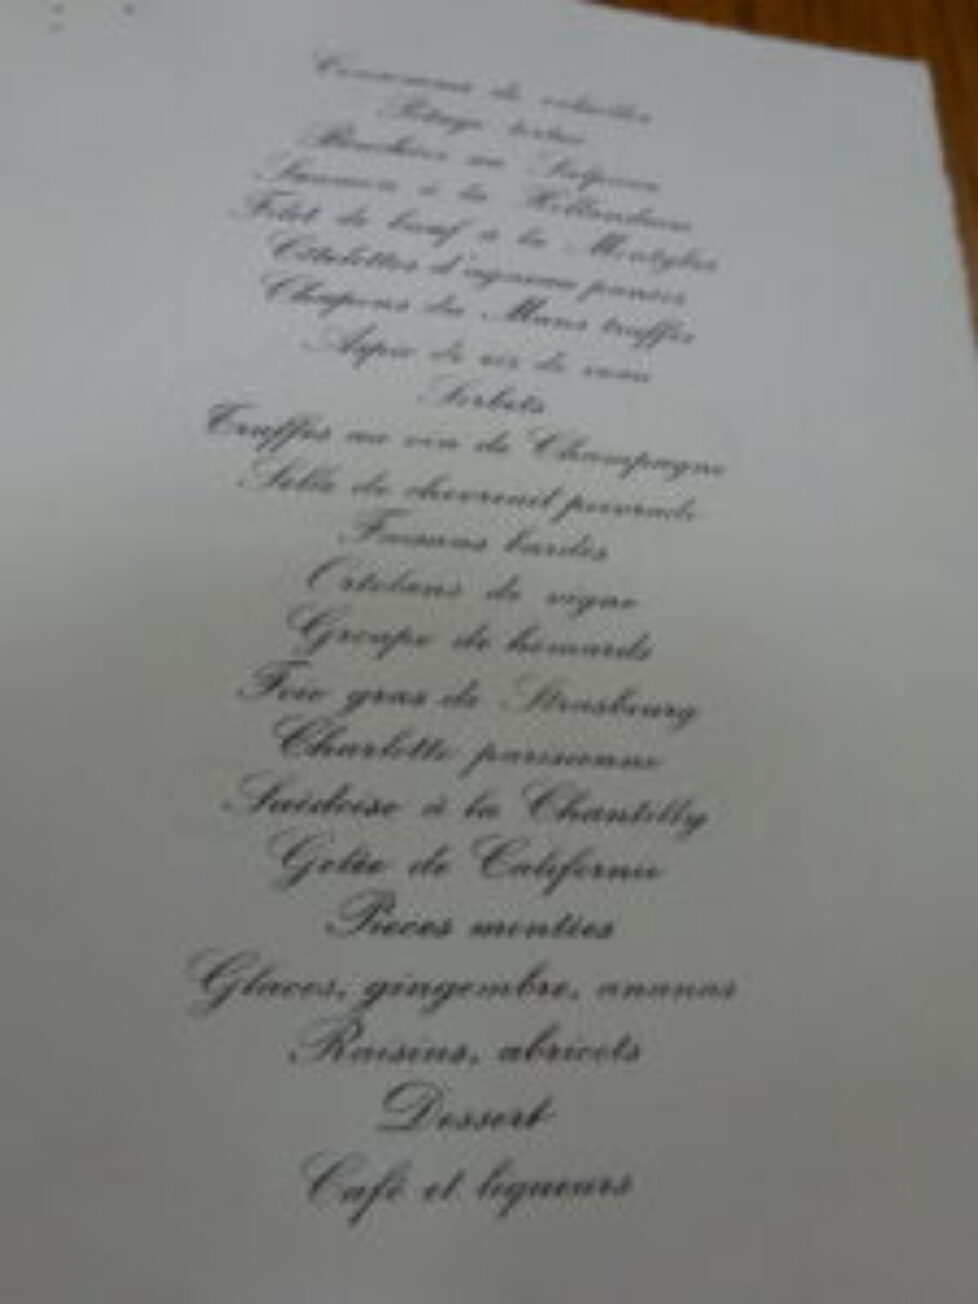 Consommé de volailles
Potage tortue
Bouchées au Salpicon
Saumon à la Hollandaise
Filet de bœuf à la
Côtelettes d'agneau panées
Chapons du Mans truffés
Aspic de ris de veau
Sorbets
Truffes au vin de Champagne
Selle de chevreuil poivrade
Faisans bardés
Ortolans de vigne
Groupe de homards
Foie gras de Strasbourg
Charlotte parisienne
Suédoise à la Chantilly
Gelée de Californie
Pièces montées
Glaces, gingembre, ananas
Raisins, abricots
Dessert
Café et liqueurs